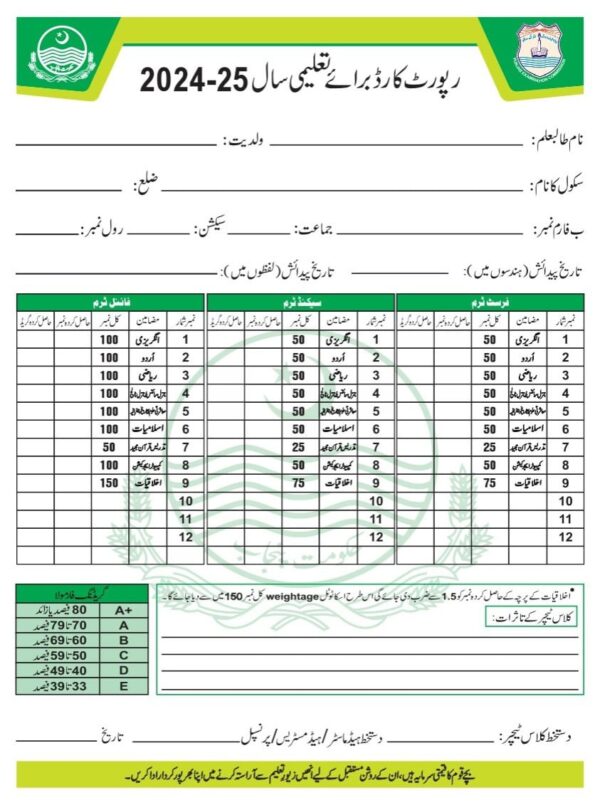 رپورٹ کارڈ برائے تعلیمی سال 25-2024
نام طالبعلم: ولدیت:
سکول کا نام: ضلع:
ب فارم نمبر: جماعت: سیکشن: رول نمبر:
تاریخ پیدائش (ہندسوں میں): تاریخ پیدائش (لفظوں میں):
فرسٹ ٹرم سیکنڈ ٹرم فائنل ٹرم
نمبر شمار مضامین کل نمبر حاصل کردہ نمبر حاصل کردہ گریڈ نمبر شمار مضامین کل نمبر حاصل کردہ نمبر حاصل کردہ گریڈ نمبر شمار مضامین کل نمبر حاصل کردہ نمبر حاصل کردہ گریڈ
1 انگریزی 50 1 انگریزی 50 1 انگریزی 100
2 اُردو 50 2 اُردو 50 2 اُردو 100
3 ریاضی 50 3 ریاضی 50 3 ریاضی 100
4 50 4 50 4 100
5 50 5 50 5 100
6 اسلامیات 50 6 اسلامیات 50 6 اسلامیات 100
7 تدریس قرآن مجید 25 7 تدریس قرآن مجید 25 7 تدریس قرآن مجید 50
8 کمپیوٹر ایجوکیشن 50 8 کمپیوٹر ایجوکیشن 50 8 کمپیوٹر ایجوکیشن 100
9 اخلاقیات 75 9 اخلاقیات 75 9 اخلاقیات 150
10 10 10
11 11 11
12 12 12
حکومت پنجاب
*اخلاقیات کے پرچہ کے حاصل کردہ نمبر کو 1.5 سے ضرب دی جائے گی اس طرح اسکا ٹوٹل weightage کل نمبر 150 میں سے دیا جائے گا۔
کلاس ٹیچر کے تاثرات:
گریڈنگ فارمولا
A+ 80 فیصد یا زائد
A 70 تا 79 فیصد
B 60 تا 69 فیصد
C 50 تا 59 فیصد
D 40 تا 49 فیصد
E 33 تا 39 فیصد
دستخط کلاس ٹیچر: دستخط ہیڈ ماسٹر/ہیڈ مسٹریس/پرنسپل تاریخ
بچے قوم کا قیمتی سرمایہ ہیں، ان کے روشن مستقبل کے لیے انھیں زیورِ تعلیم سے آراستہ کرنے میں اپنا بھرپور کردار ادا کریں۔